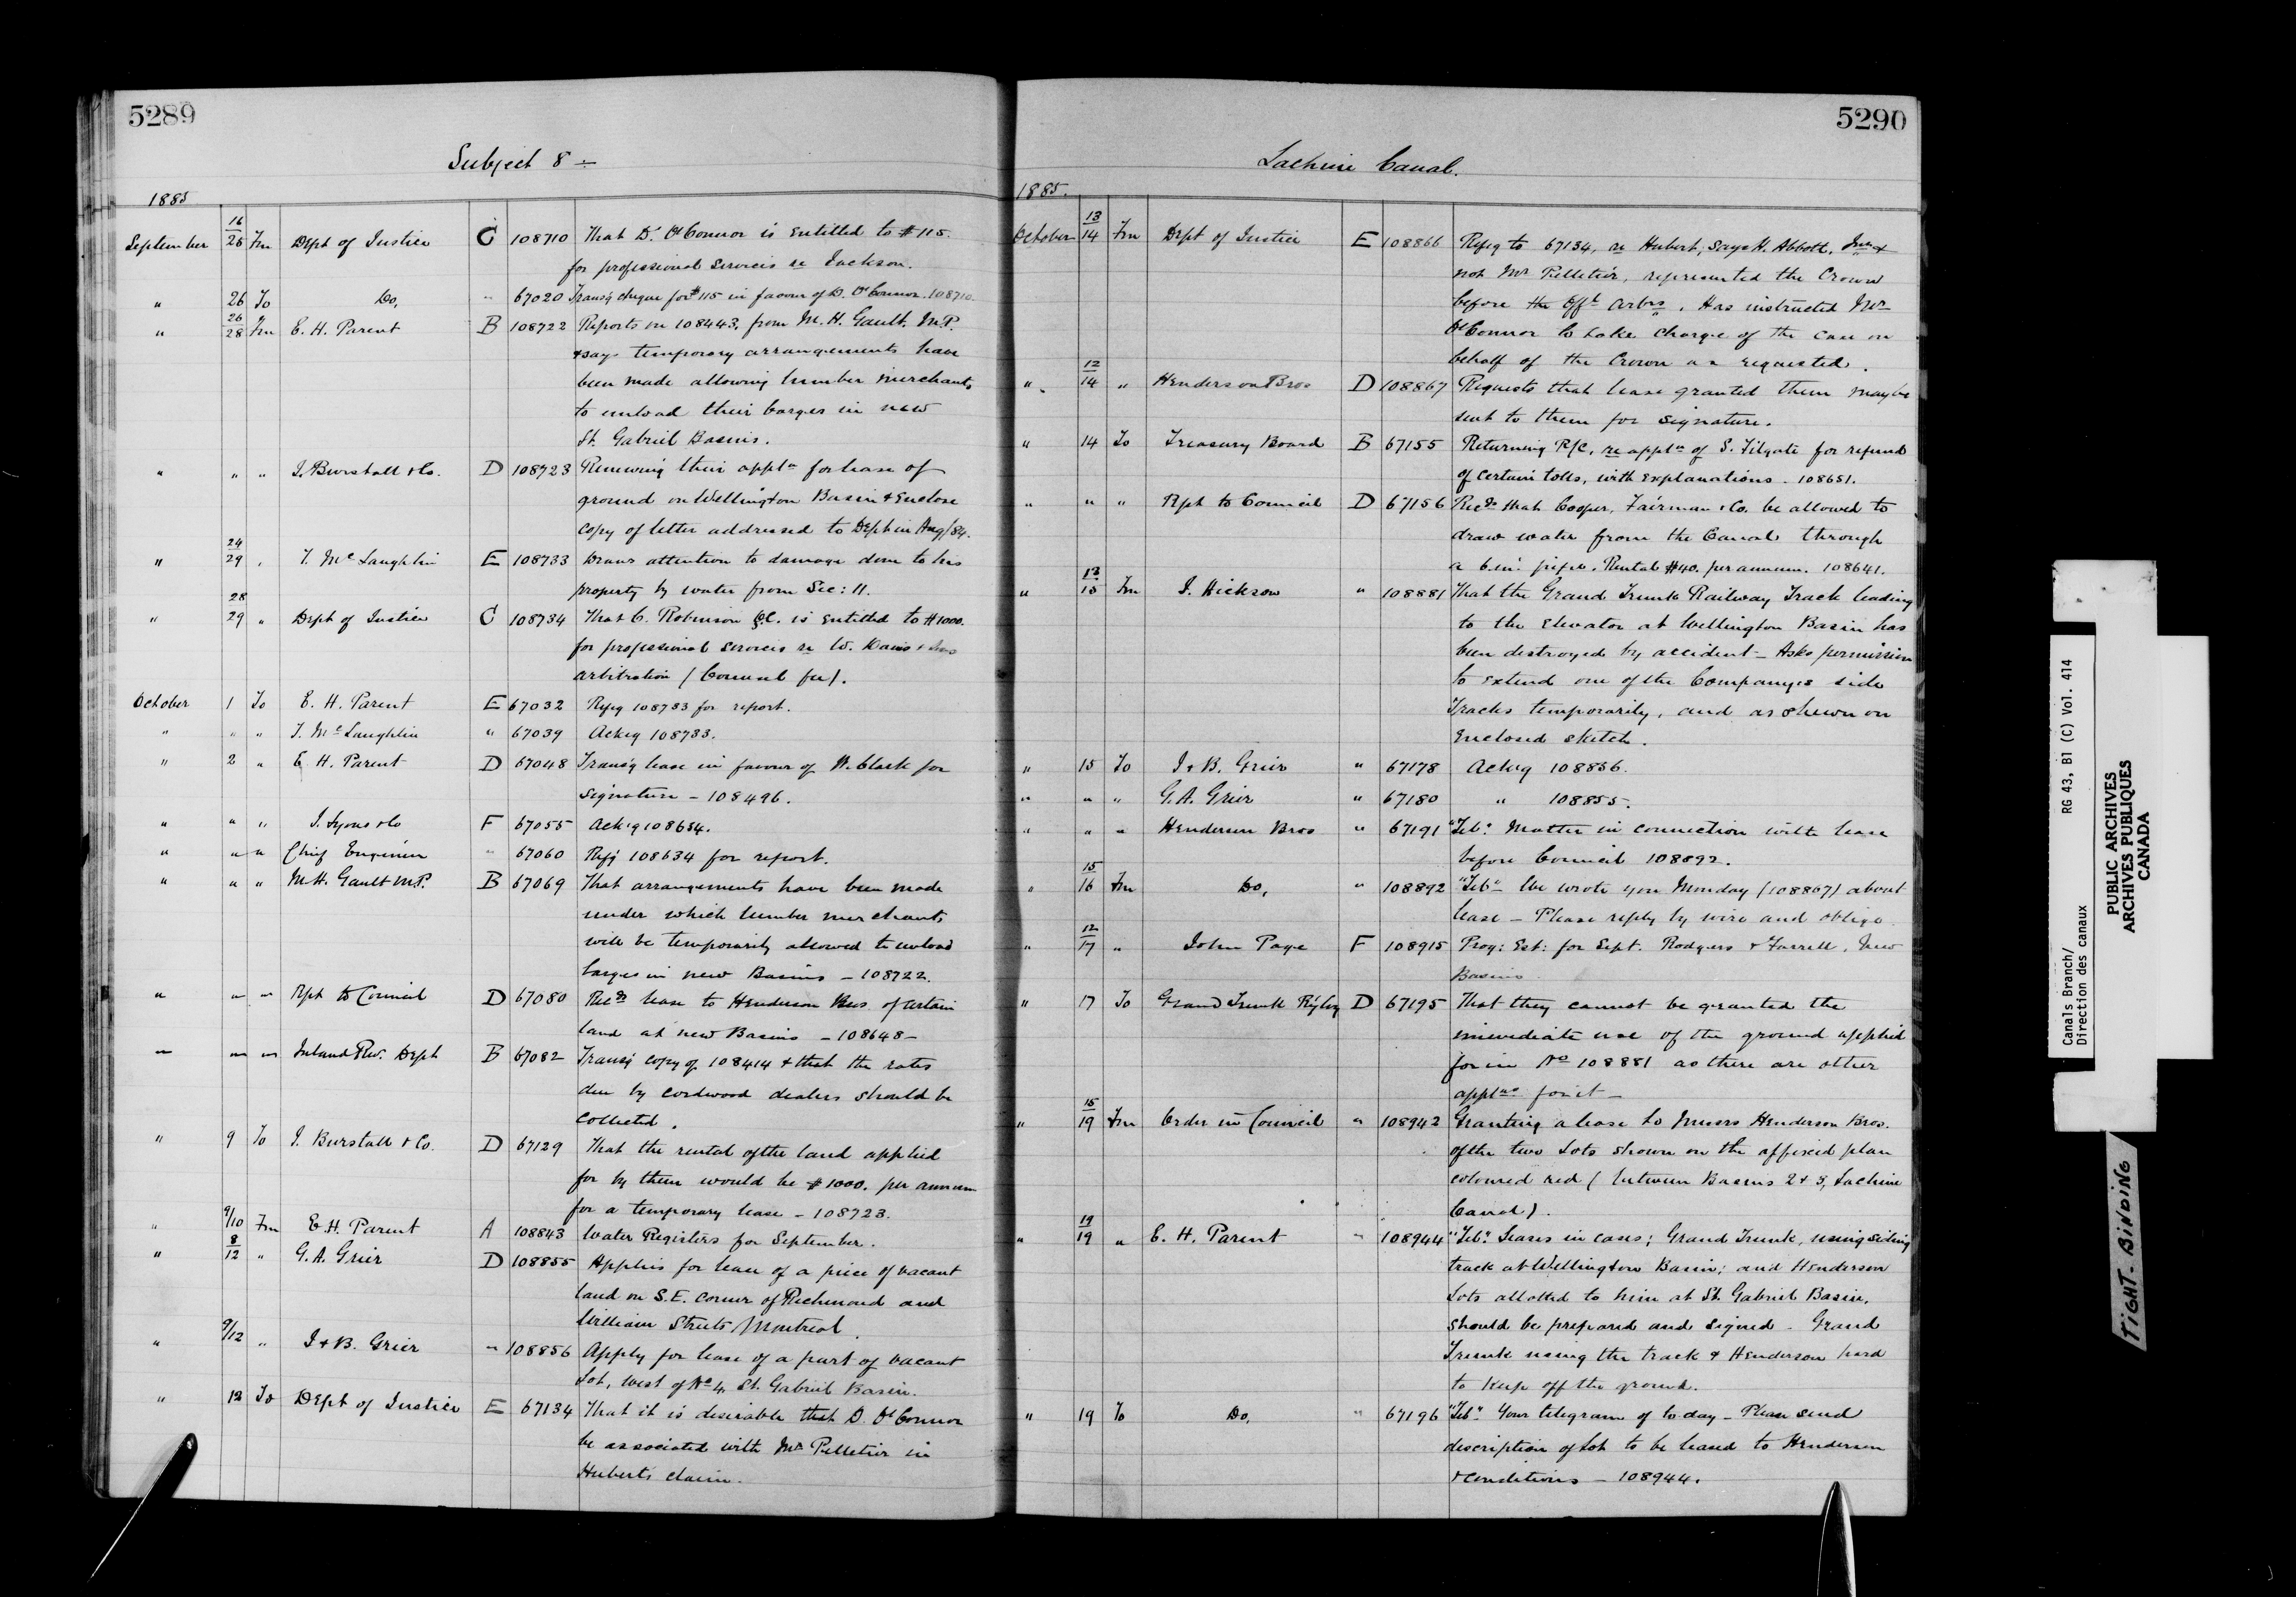 5289
Subject 8
1885
September 16/25 Fm Dept of Justice C 108710 That D. O'Connor is entitled to $115.
for professional services re Jackson.
" 26 To Do, " 67020 Transg cheque for $115 in favour of D. O'Connor. 108710.
" 26/28 Fm E. H. Parent B 108722 Reports on 108443, from M. H. Gault, M.P.
& says temporary arrangements have
been made allowing lumber merchants
to unload their barges in new
St. Gabriel Basins.
" " " J. Burstall & Co. D 108723 Renewing their appln for lease of
ground on Wellington Basin & Enclose
copy of letter addressed to Dept in Aug/84.
" 24/29 " T. McLaughlin E 108733 Draws attention to damage done to his
property by water from Sec: 11.
" 28/29 " Dept of Justice C 108734 That C. Robinson Q.C. is entitled to $1000.
for professional services re W. Davis & Sons
arbitration (Counsel fee).
October 1 To E. H. Parent E 67032 Refg 108733 for report.
" " " T. McLaughlin " 67039 Ackg 108733.
" 2 " E. H. Parent D 67048 Transg lease in favour of W. Clark for
signature - 108496.
" " " J. Lyons & Co F 67055 Ackg 108634.
" " " Chief Engineer " 67060 Refg 108634 for report.
" " " M. H. Gault M.P. B 67069 That arrangements have been made
under which lumber merchants
will be temporarily allowed to unload
barges in new Basins - 108722.
" " " Rpt to Council D 67080 Recds lease to Henderson Bros. of certain
land at new Basins - 108648 -
" " " Inland Rev. Dept B 67082 Transg copy of 108414 & that the rates
due by cordwood dealers should be
collected.
" 9 To J. Burstall & Co. D 67129 That the rental of the land applied
for by them would be $1000. per annum
for a temporary lease - 108723.
" 9/10 Fm E. H. Parent A 108843 Water Registers for September.
" 8/12 " G. A. Grier D 108855 Applies for lease of a piece of vacant
land on S.E. corner of Richmond and
William Streets Montreal.
" 9/12 " J & B. Grier " 108856 Apply for lease of a part of vacant
Lot, West of No 4, St. Gabriel Basin.
" 12 To Dept of Justice E 67134 That it is desirable that D. O'Connor
be associated with Mr Pelletier in
Hubert's claim.
5290
Lachine Canal.
1885.
October 13/14 Fm Dept of Justice E 108866 Refrg to 67134, re Hubert, says H. Abbott, Junr &
not Mr Pelletier, represented the Crown
before the Offl Arbrs. Has instructed Mr
O'Connor to take charge of the case on
behalf of the Crown as requested.
" 12/14 " Henderson Bros D 108867 Requests that lease granted them may be
sent to them for signature.
" 14 To Treasury Board B 67155 Returning P/C, re appln of S. Filgate for refund
of certain tolls, with explanations. 108651.
" " " Rpt to Council D 67156 Recds that Cooper, Fairman & Co. be allowed to
draw water from the Canal through
a 6 in: pipe. Rental $40. per annum. 108641.
" 13/15 Fm J. Hickson " 108881 That the Grand Trunk Railway Track leading
to the Elevator at Wellington Basin has
been destroyed by accident - Asks permission
to extend one of the Companys side
Tracks temporarily, and as shewn on
Enclosed sketch.
" 15 To J & B. Grier " 67178 Ackg 108856.
" " " G. A. Grier " 67180 " 108855.
" " " Henderson Bros " 67191 "Tel". Matter in connection with lease
before Council 108892.
" 15/16 Fm Do, " 108892 "Tel" We wrote you Monday (108867) about
lease - Please reply by wire and oblige
" 12/17 " John Page F 108915 Prog: Est: for Sept. Rodgers & Farrell, New
Basins
" 17 To Grand Trunk R'y Coy D 67195 That they cannot be granted the
immediate use of the ground applied
for in No 108881 as there are other
applns for it -
" 15/19 Fm Order in Council " 108942 Granting a lease to Messrs Henderson Bros.
of the two Lots shown on the affixed plan
coloured red (between Basins 2 & 3, Lachine
Canal).
" 19/19 " E. H. Parent " 108944 "Tel". Leases in cases; Grand Trunk, using siding
track at Wellington Basin; and Henderson
Lots allotted to him at St. Gabriel Basin,
should be prepared and signed - Grand
Trunk using the track & Henderson hard
to keep off the ground.
" 19 To Do, " 67196 "Tel". Your telegram of to day - Please send
description of Lot to be leased to Henderson
& conditions - 108944.
Canals Branch/ RG 43, B1 (C) Vol. 414
Direction des canaux
PUBLIC ARCHIVES
ARCHIVES PUBLIQUES
CANADA
TIGHT BINDING